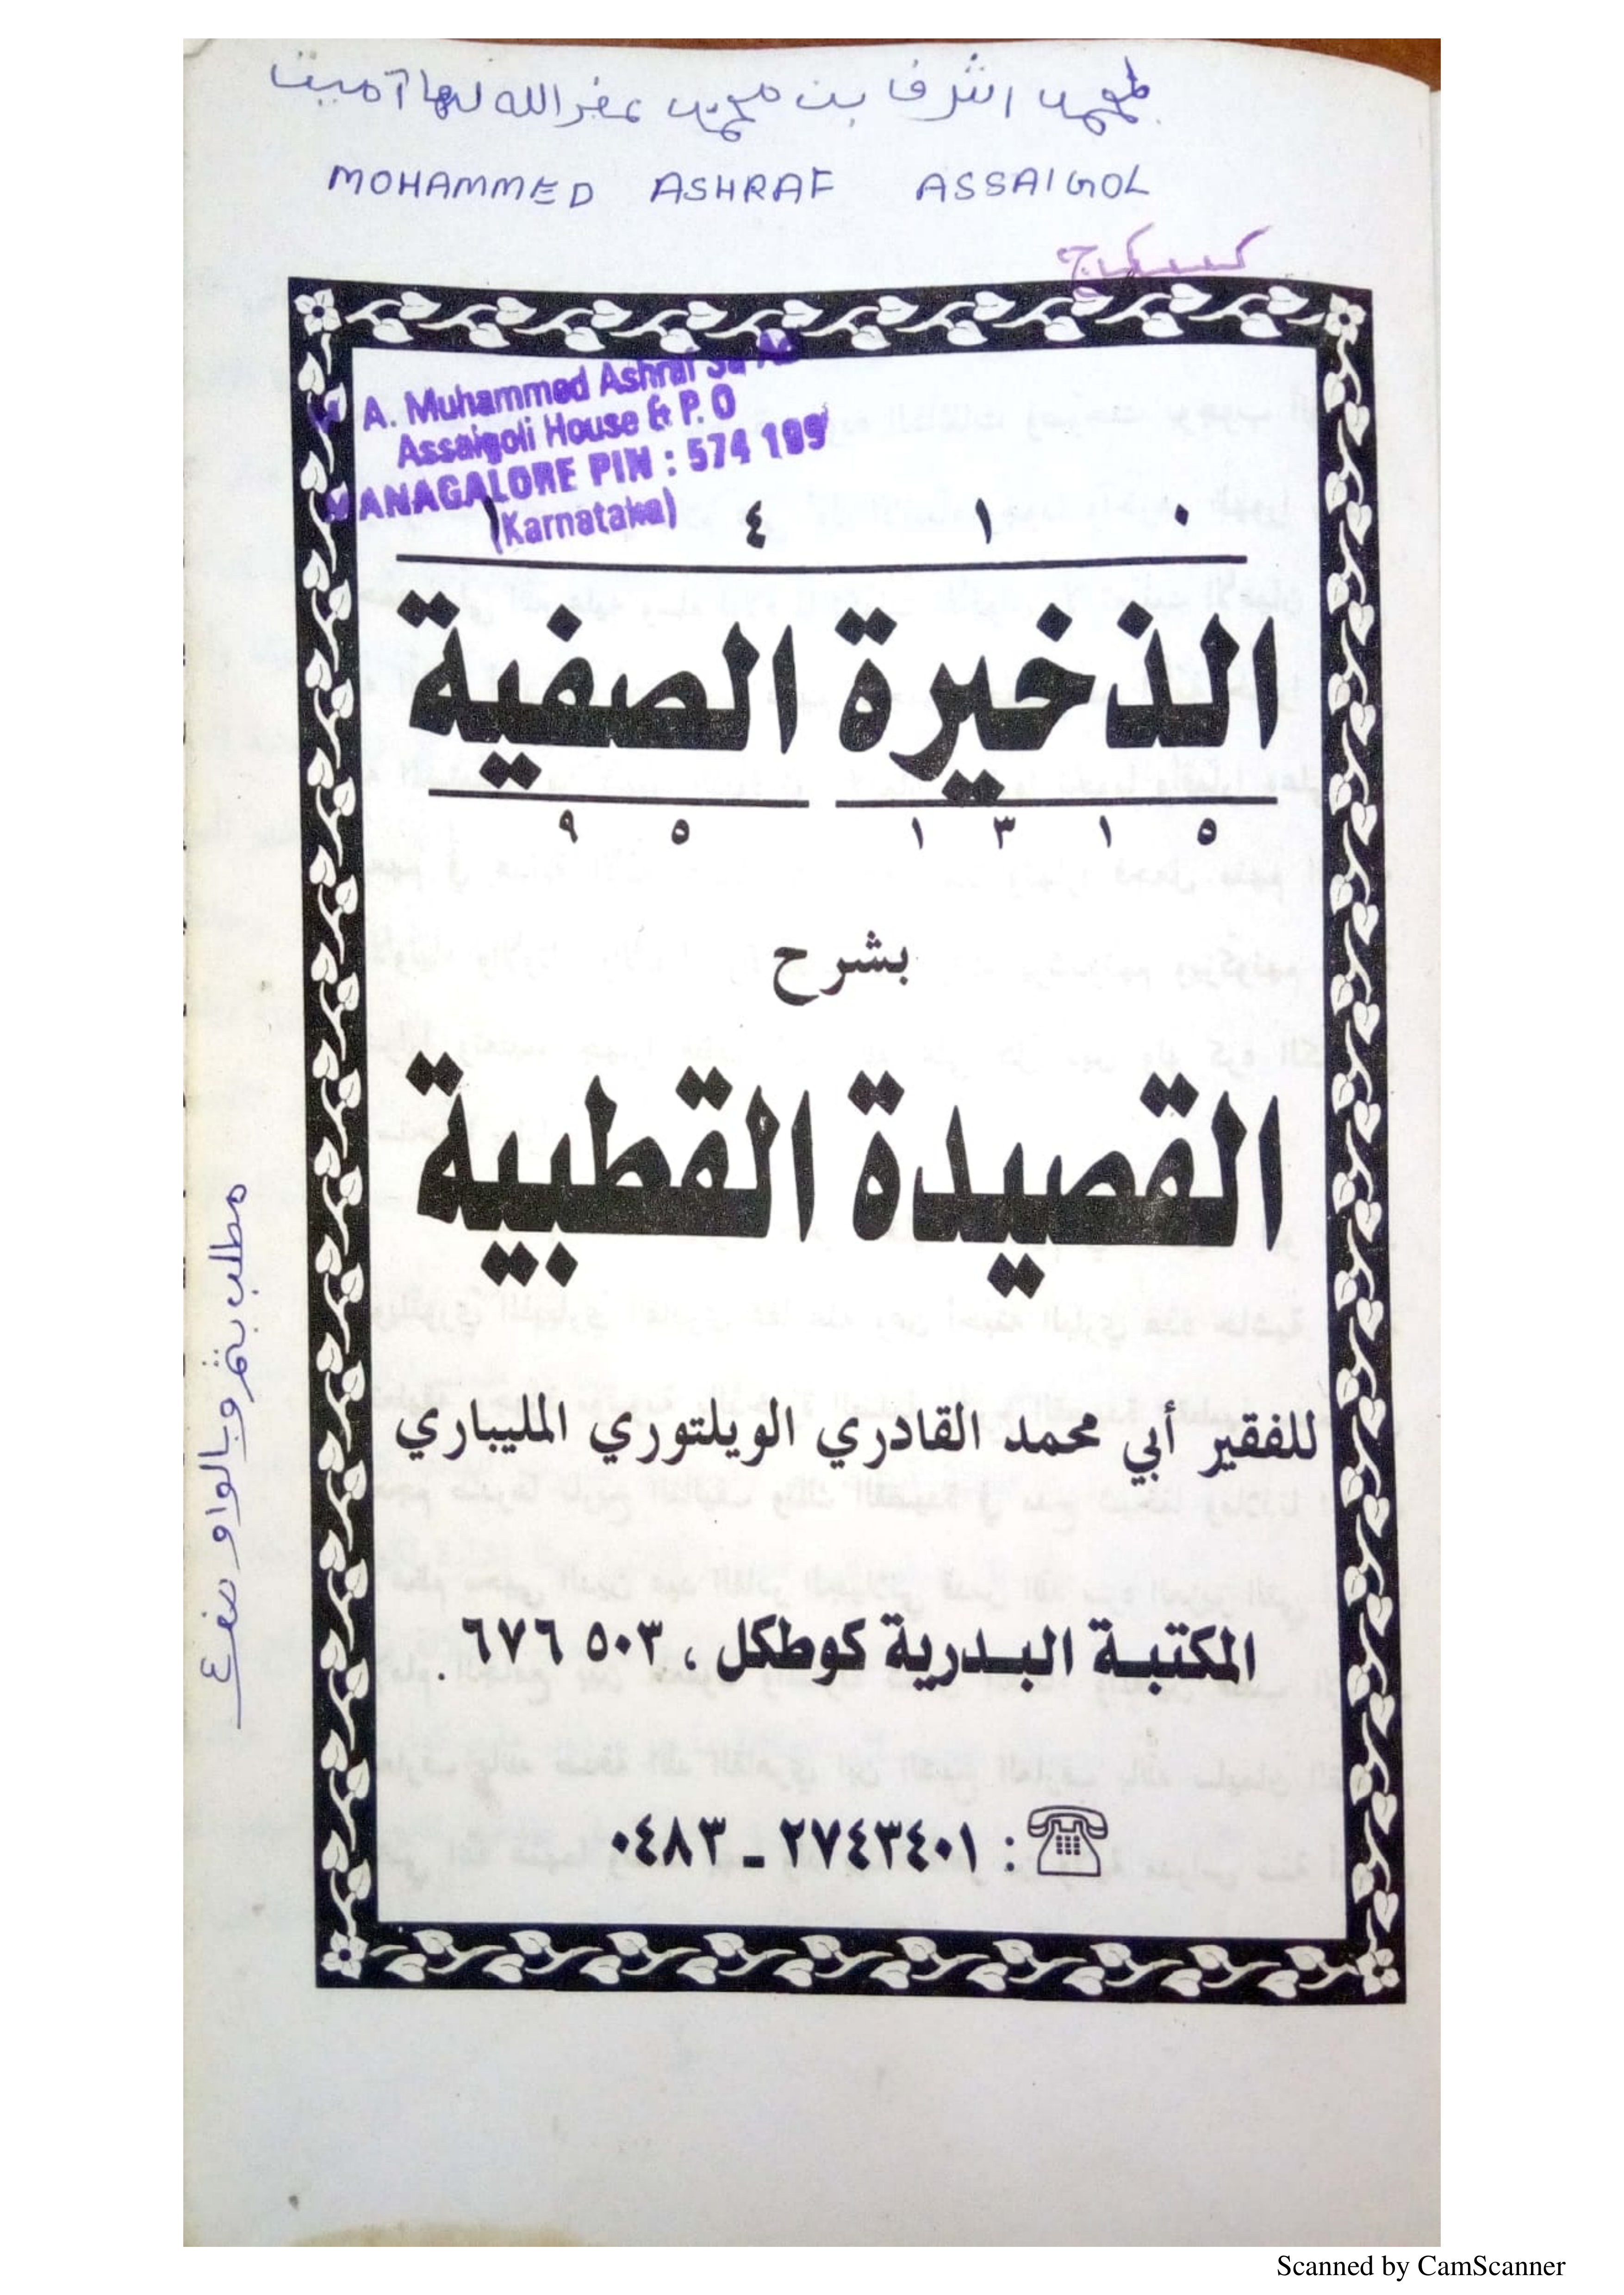 لمحمد اشرف بن محمد غفر الله لهما آمين
MOHAMMED ASHRAF ASSAIGOL
A. Muhammed Ashraf
Assaigoli House & P. O
MANAGALORE PIN : 574 199
(Karnataka)
١ ٤ ١ ٠
الذخيرة الصفية
١٣١٥ ٩٥
بشرح
القصيدة القطبية
للفقير أبي محمد القادري الويلتوري المليباري
المكتبة البدرية كوطكل ، ٥٠٣ ٦٧٦ .
٠٤٨٣ - ٢٧٤٣٤٠١ :
مطلب
Scanned by CamScanner